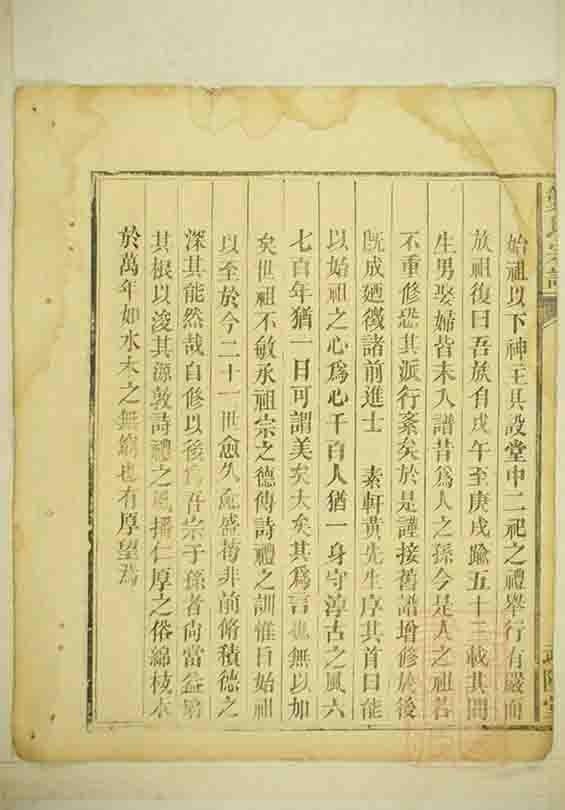 始祖以下神主具設堂中二祀之禮舉行有嚴而
放祖復曰吾族自戌午至庚戌踰五十三載其間
生男娶婦皆未入譜昔爲人之孫今是人之祖若
不重修恐其派行紊矣於是謹接舊譜增修於後
既成廼徵諸前進士 素軒黃先生序其首曰能
以始祖之心爲心千百人猶一身守淳古之風六
七百年猶一日可謂美矣大矣其爲言也無以加
矣世祖不敏承祖宗之德傳詩禮之訓惟自始祖
以至於今二十一世愈久愈盛苟非前脩積德之
深其能然哉自修以後爲吾宗子孫者尚當益
其根以浚其源敦詩禮之風播仁厚之俗綿枝
於萬年如水木之無窮也有厚望焉
氏宗譜
堂